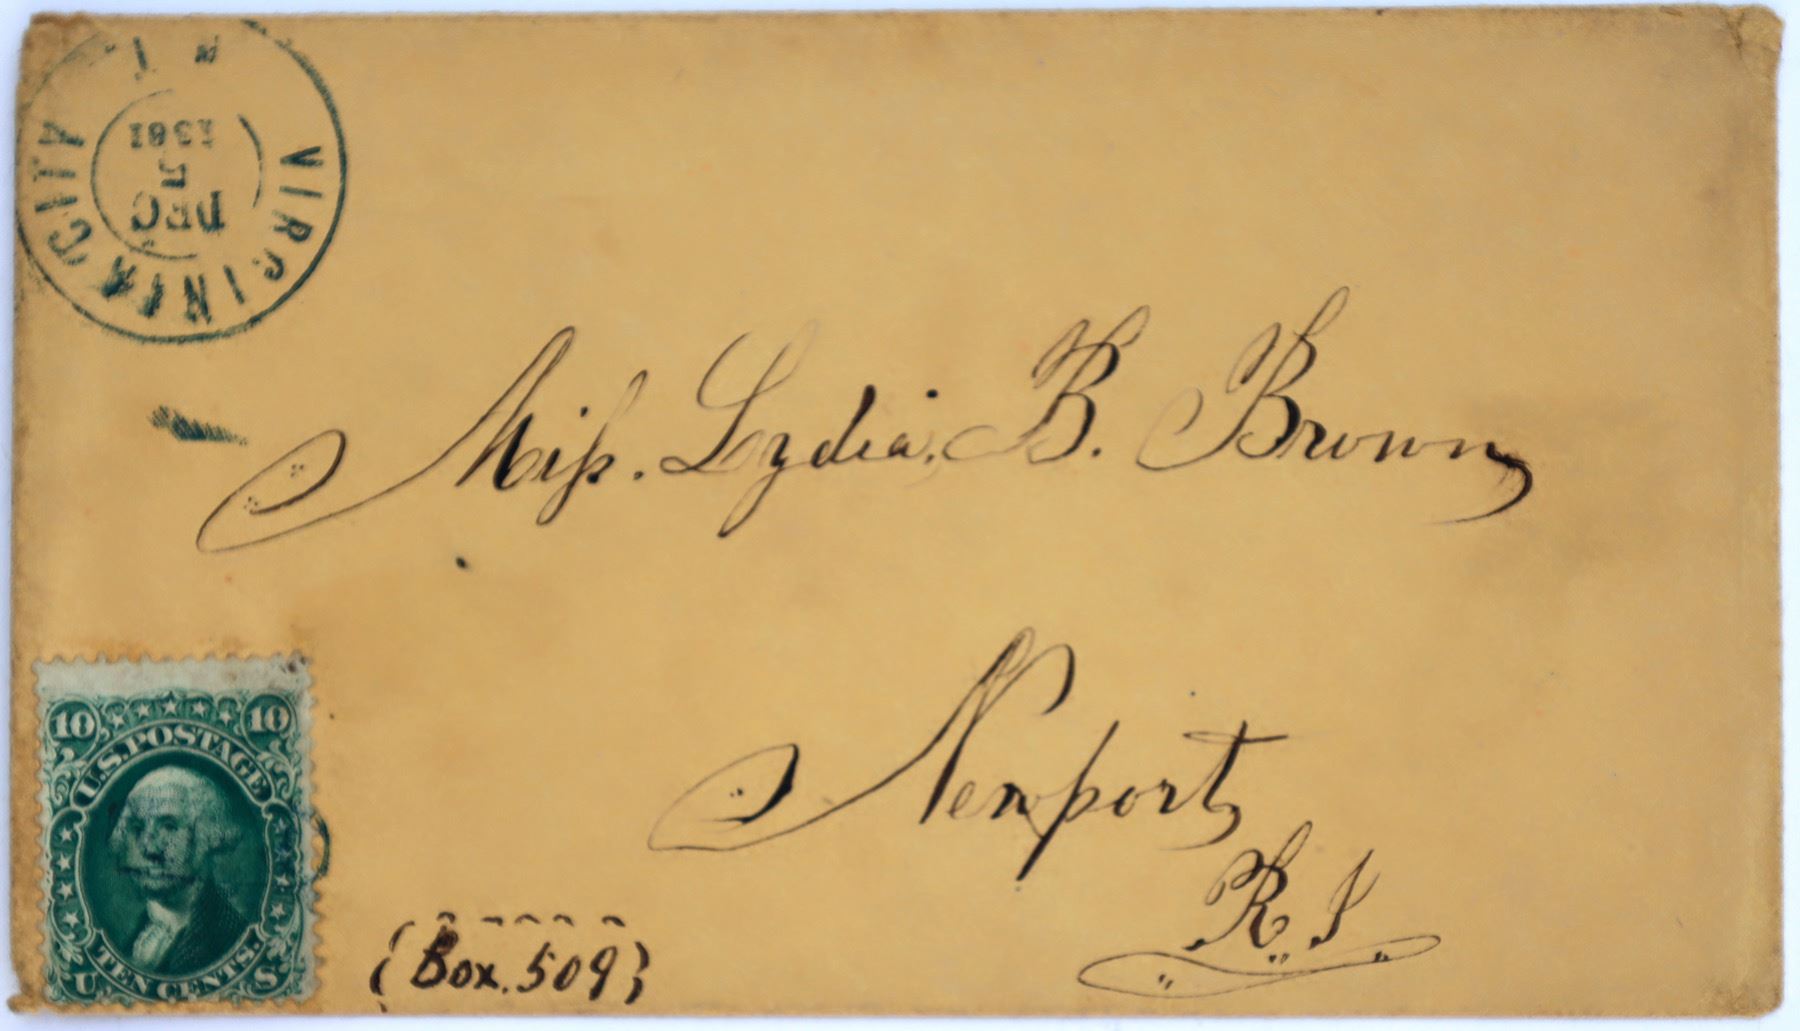 VIRGINIA CITY
DEC
5
1861
Miss. Lydia. B. Brown
Newport
R. I
(Box. 509)
10 10
U.S. POSTAGE
TEN CENTS.
U S